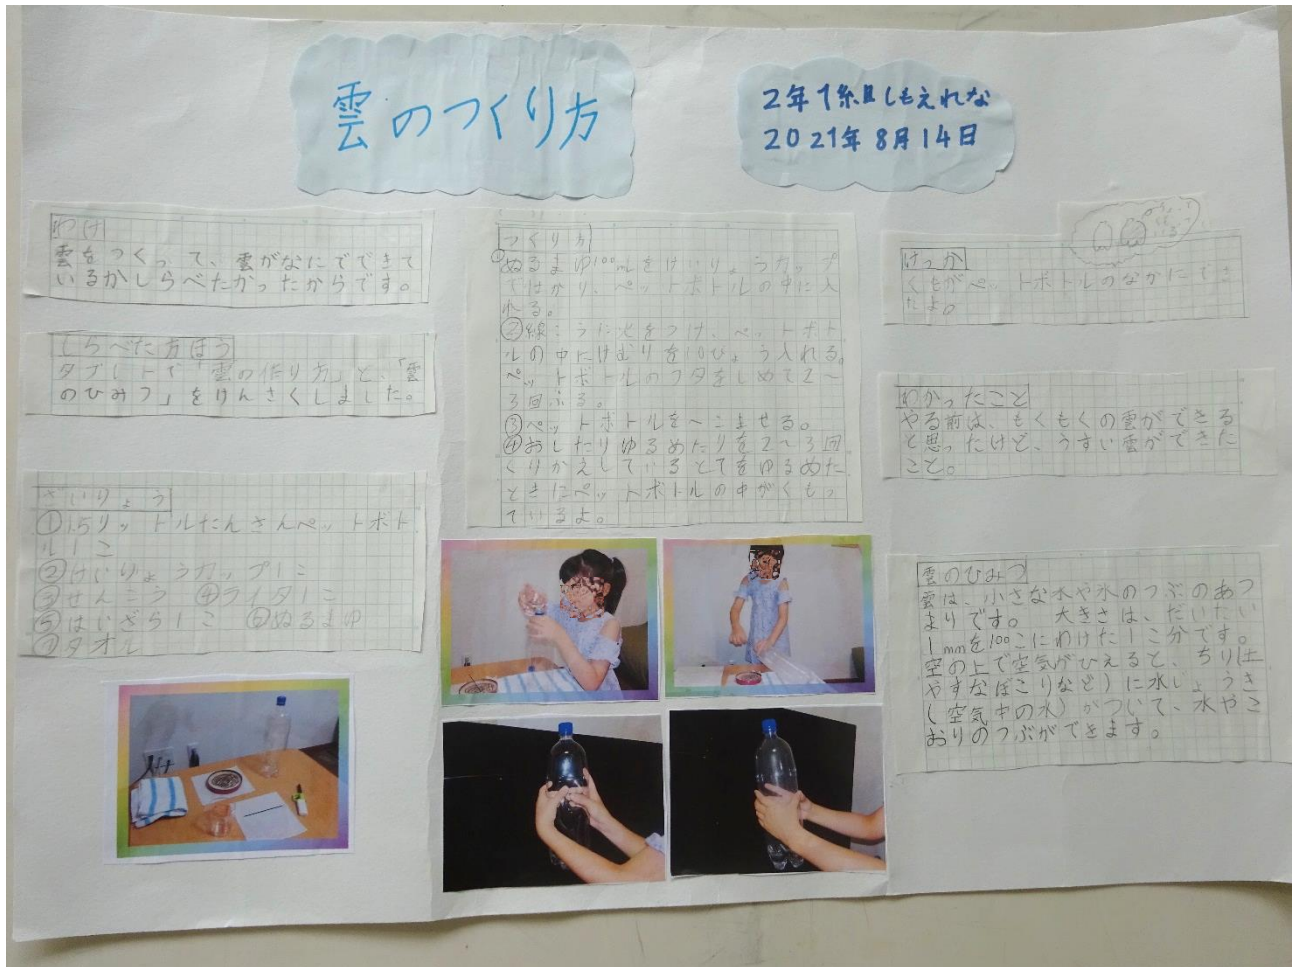 雲のつくり方
2年1組しもえれな
2021年8月14日
わけ
雲をつくって、雲がなにでできて
いるかしらべたかったからです。
しらべた方ほう
タブレットで「雲の作り方」と、「雲
のひみつ」をけんさくしました。
ざいりょう
①1.5リットルたんさんペットボト
ル1こ
②けいりょうカップ1こ
③せんこう ④ライター1こ
⑤はいざら1こ ⑥ぬるまゆ
⑦タオル
つくり方
①ぬるまゆ100mLをけいりょうカップ
ではかり、ペットボトルの中に入
れる。
②線こうに火をつけ、ペットボト
ルの中にけむりを10びょう入れる。
ペットボトルのフタをしめて2〜
3回ふる。
③ペットボトルをへこませる。
④おしたりゆるめたりを2〜3回
くりかえしているとてをゆるめた
ときにペットボトルの中がくもっ
ているよ。
けっか
くもがペットボトルのなかにでき
たよ。
わかったこと
やる前は、もくもくの雲ができる
と思ったけど、うすい雲ができた
こと。
雲のひみつ
雲は、小さな水や氷のつぶのあつ
まりです。 大きさは、だいたい
1mmを100こにわけた1こ分です。
空の上で空気がひえると、ちり(土
やすなぼこりなど)に水じょうき
(空気中の水)がついて、水やこ
おりのつぶができます。